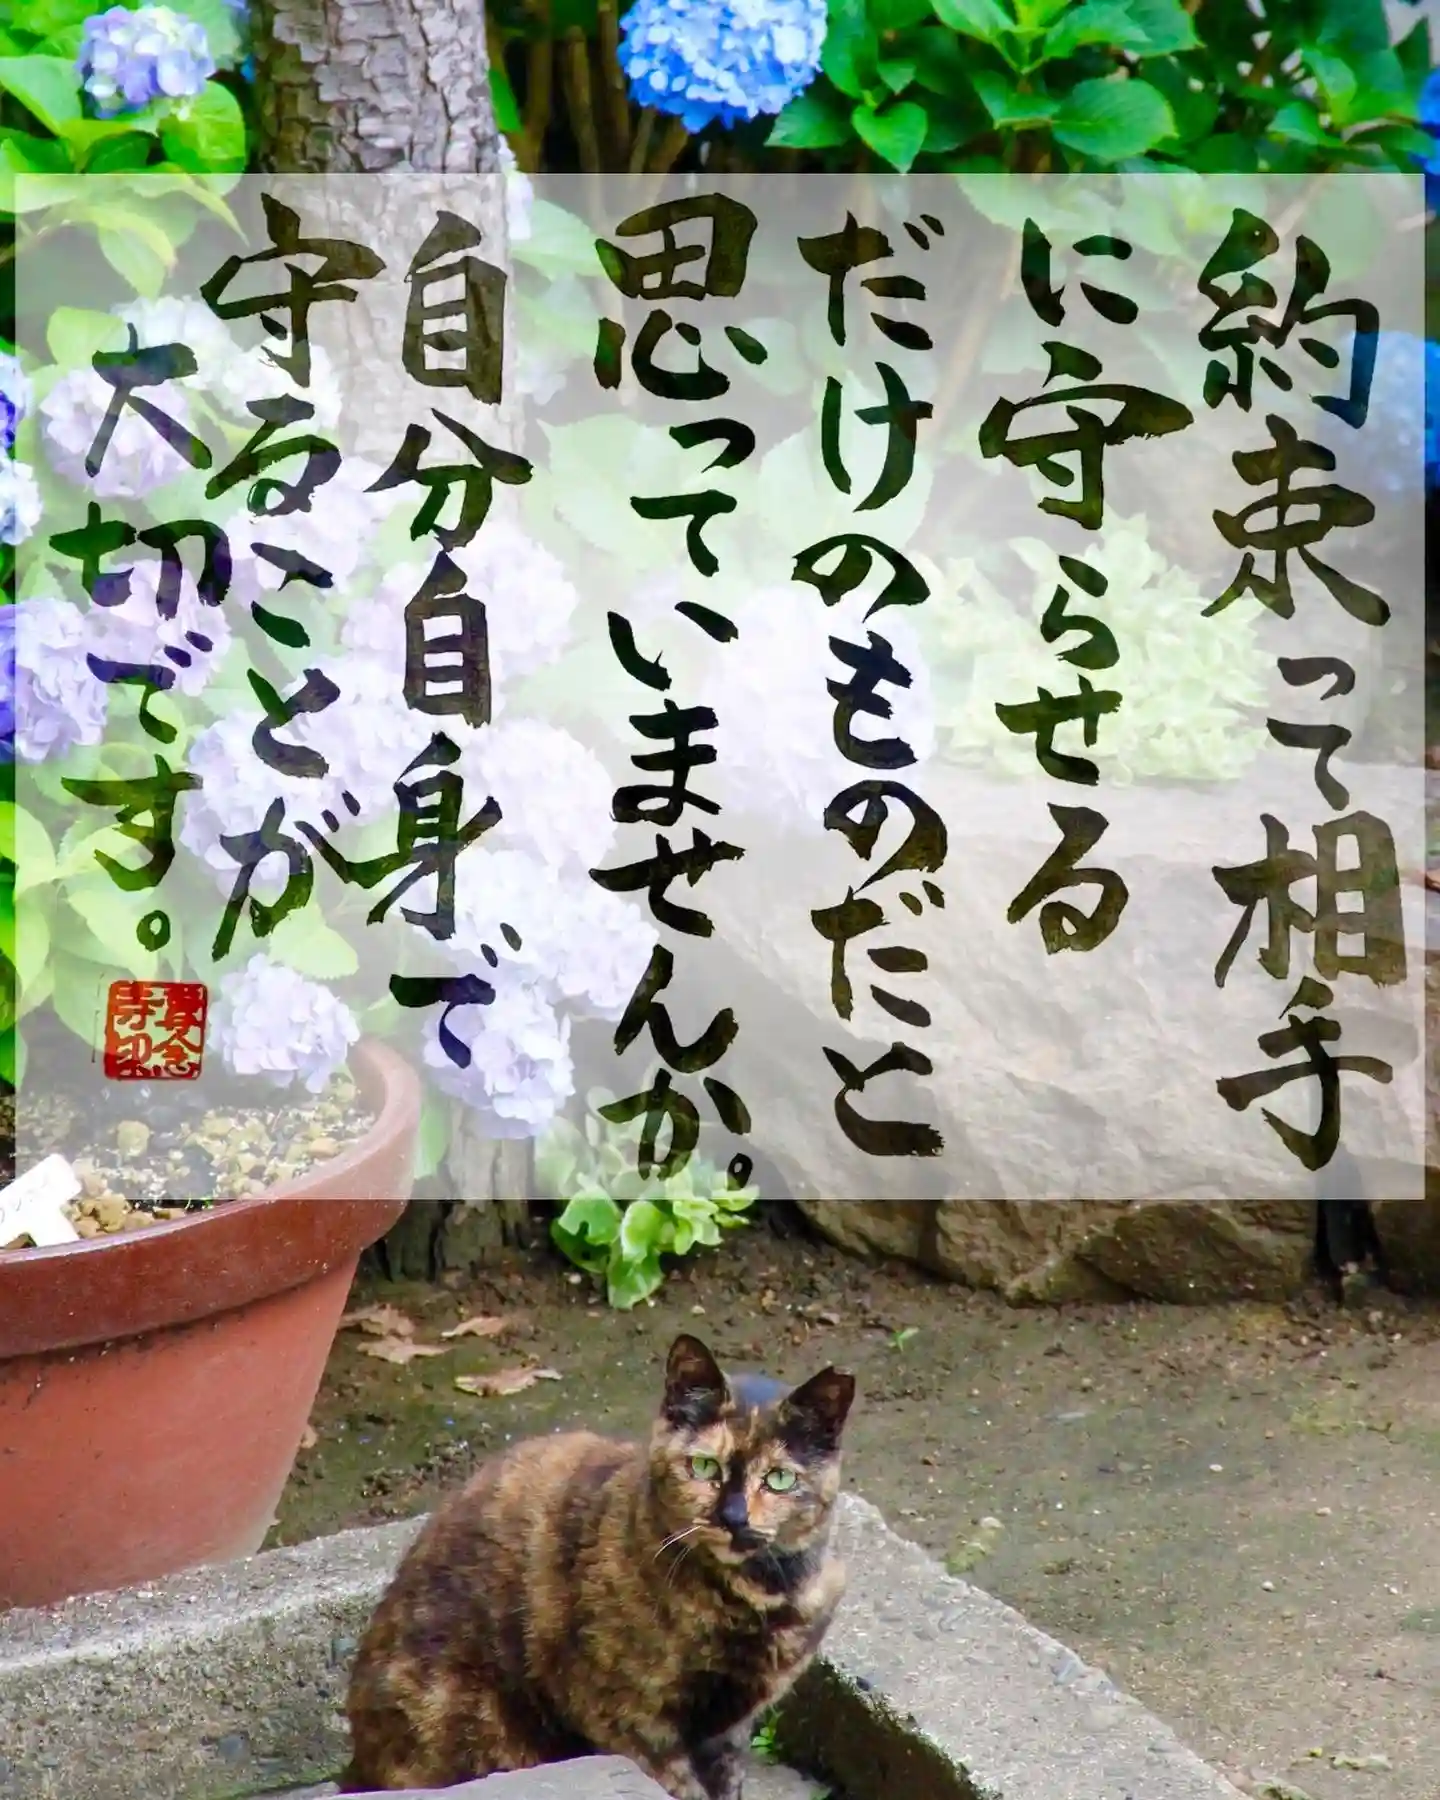 約束って相手
に守らせる
だけのものだと
思っていませんか。
自分自身で
守ることが
大切です。